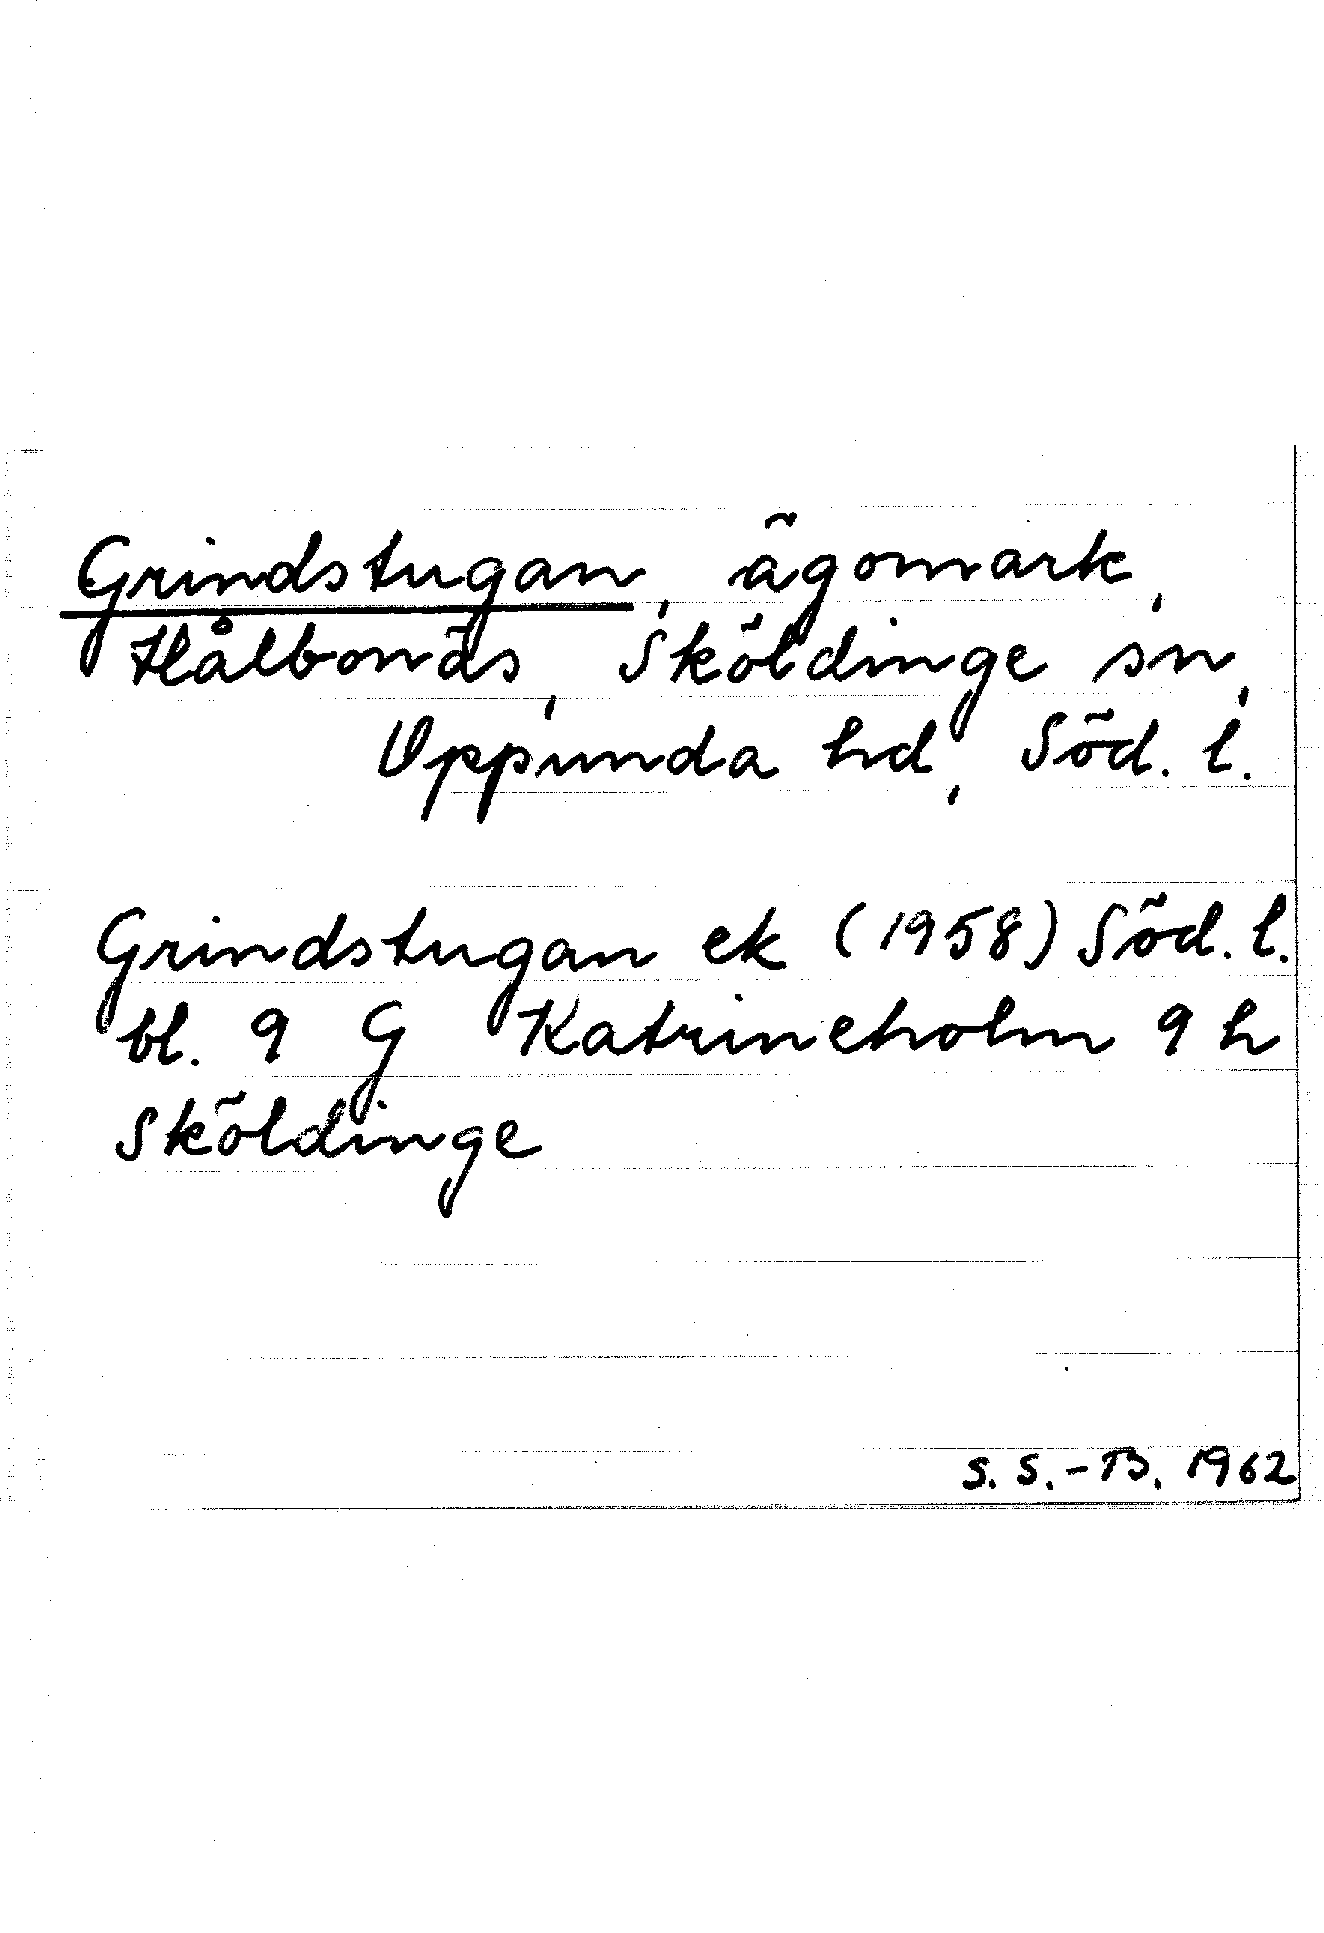 Grindstugan, ägomark,
Hålbonäs, Sköldinge sn,
Oppunda hd, Söd. l.
Grindstugan ek (1958) Söd. l.
bl. 9 G Katrineholm 9 h
Sköldinge
S. S.-B. 1962